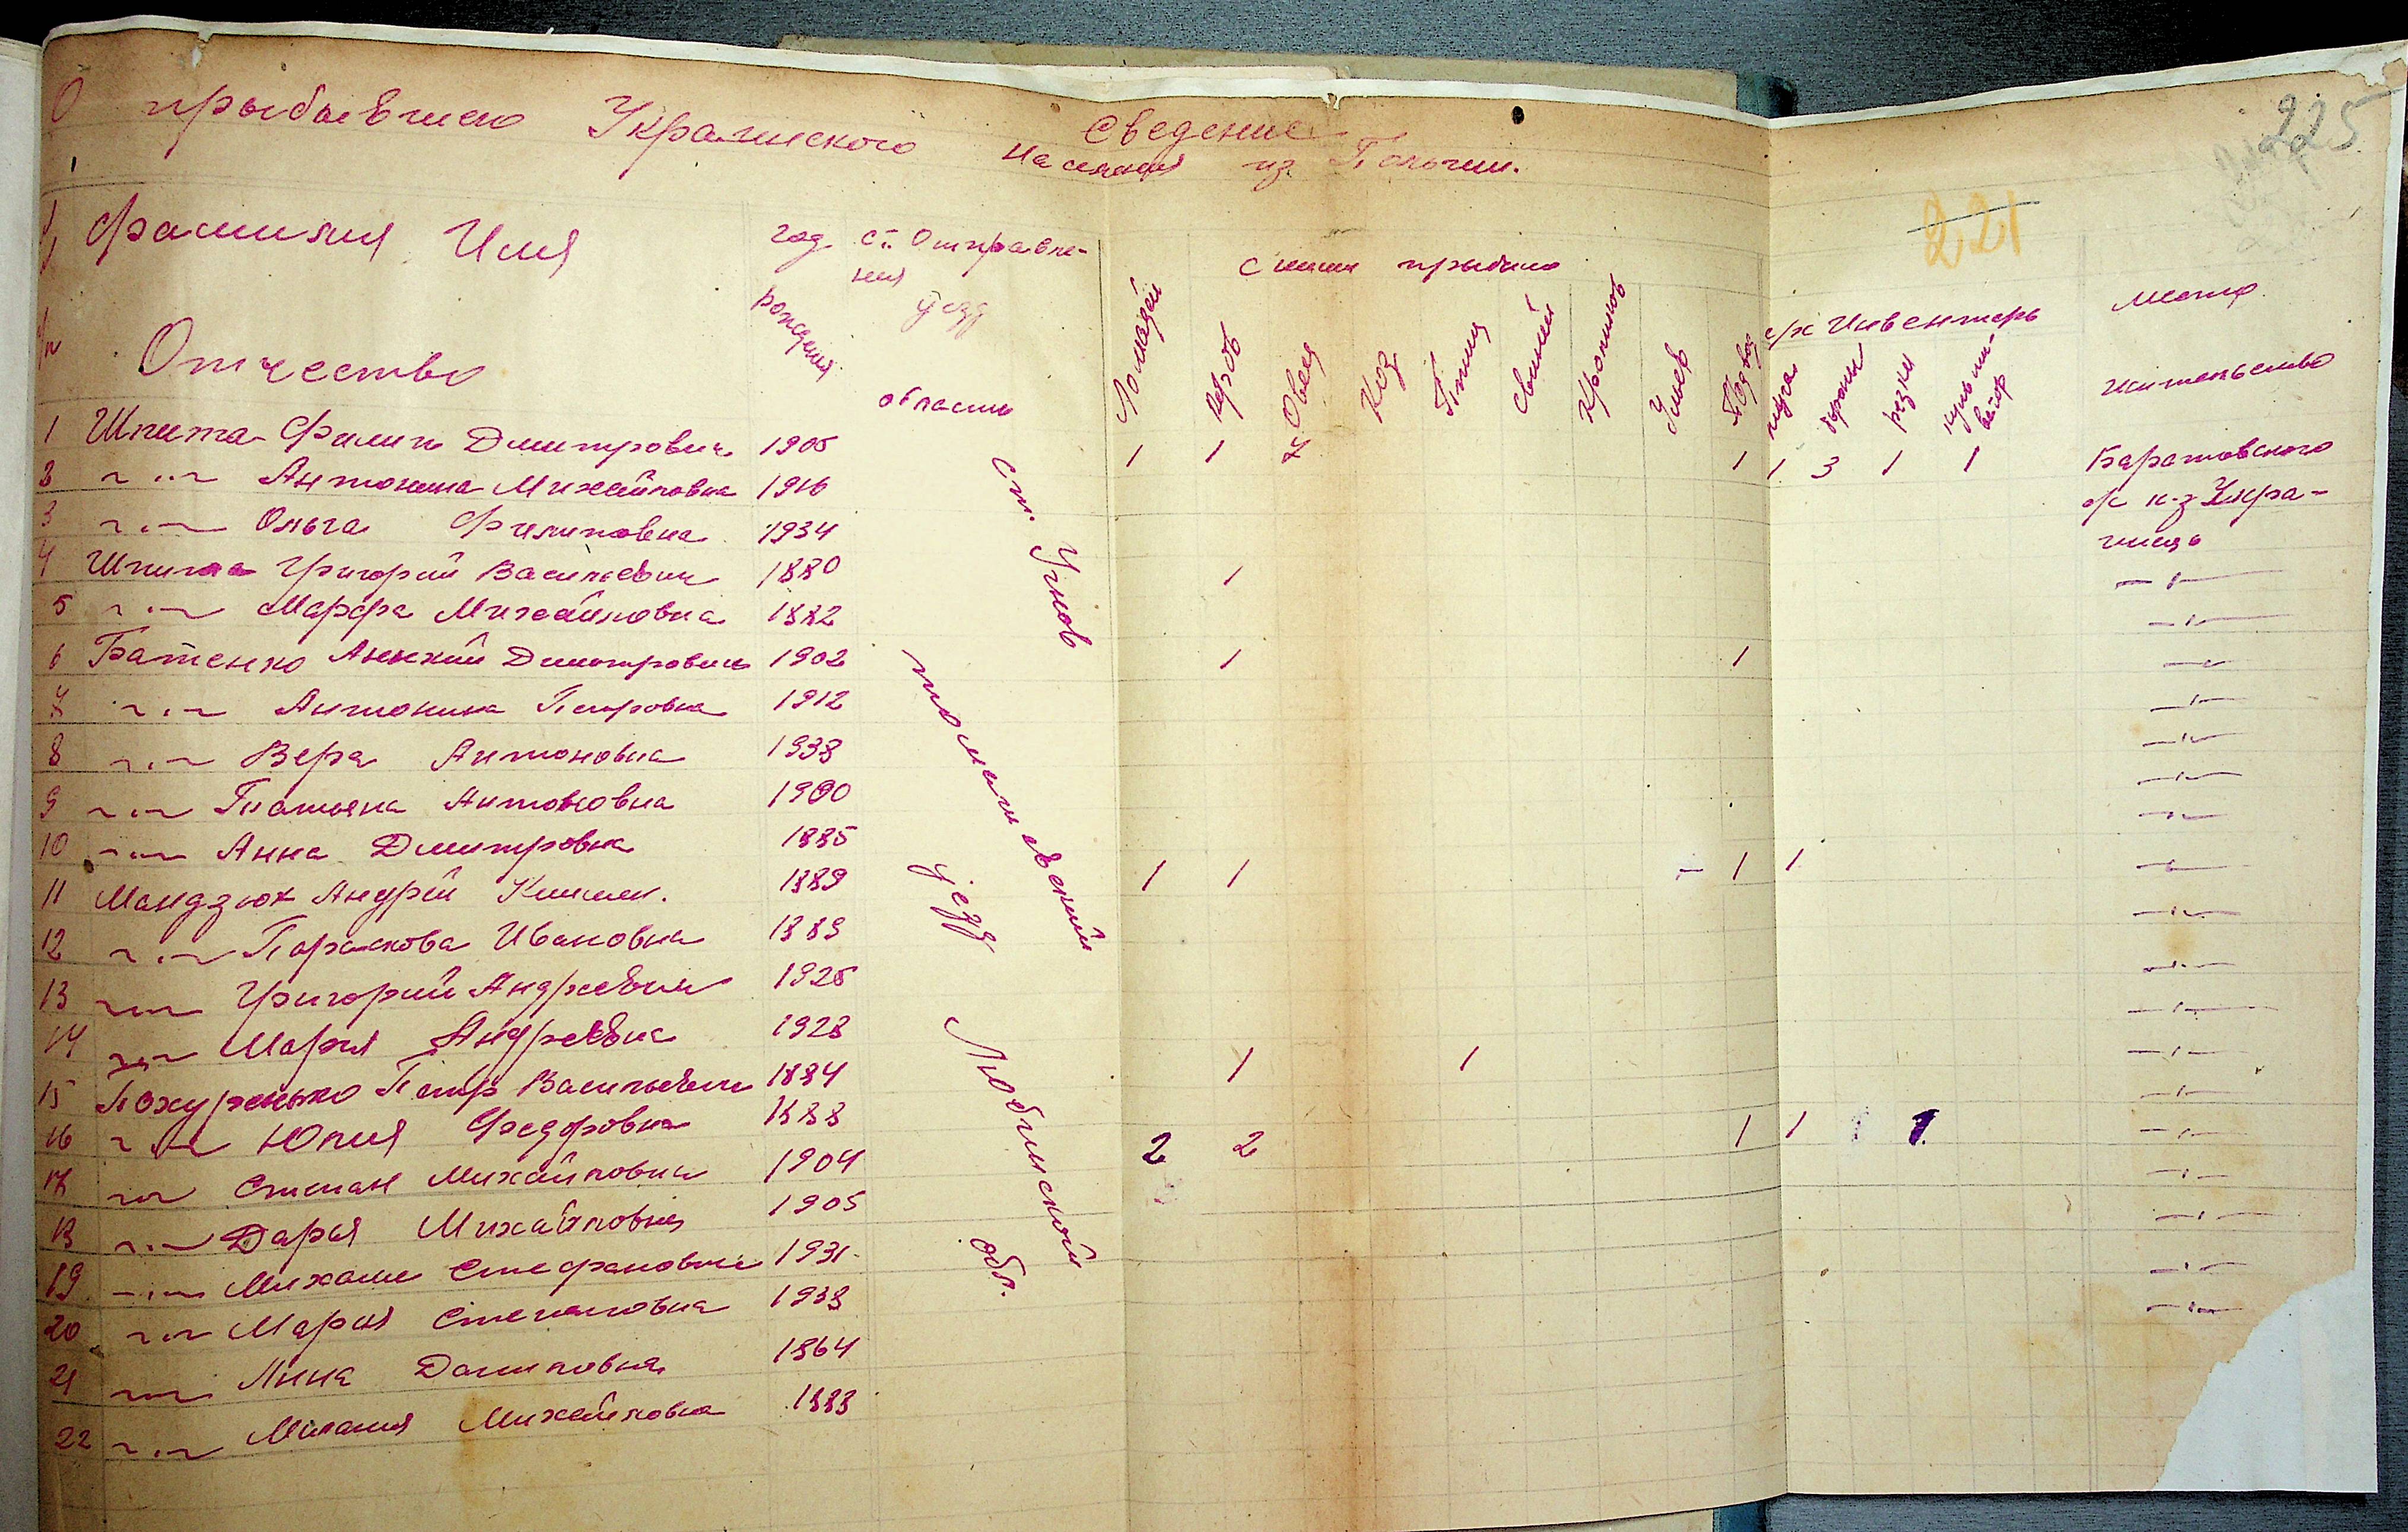 Сведение
О прыбывшего Украинского Населения из Польши.
225
221
Фамилия Имя
Отчество
год рождения
ст. Отправления
уезд
область
с ними прыбыло
Лошадей
коров
Овец
Коз
Птиц
Свиней
Кроликов
Ульев
Подвод
с/х Инвентарь
плуга
бороны
резки
культиватор
место
жительство
1 Шпита Филип Дмитрович 1905 1 1 1 1 3 1 1 Баратовского
2 〃 Антонина Михайловна 1916 с/с к-з Укра-
3 〃 Ольга Филиповна 1934 инець
4 Шпита Григорий Васильевич 1880 1 〃
5 〃 Марфа Михайловна 1882 〃
6 Батенко Дмитрович 1902 1 1 〃
7 〃 Антонина Петровна 1912 〃
8 〃 Вера Антоновна 1938 〃
9 〃 Татьяна Антоновна 1900 〃
10 〃 Анна Дмитровна 1885 〃
11 Мандзюк Андрей 1889 1 1 1 1 〃
12 〃 Парасковa Ивановна 1889 〃
13 〃 Григорий Андреевич 1925 〃
14 〃 Мария Андреевна 1928 〃
15 Похуренько Петр Васильевич 1884 1 1 〃
16 〃 Юлия Федоровна 1888 〃
17 〃 Степан Михайлович 1904 2 2 1 1 1 1 〃
18 〃 Дарья Михайловна 1905 〃
19 〃 Михаил Стефанович 1931 〃
20 〃 Мария Степановна 1938 〃
21 〃 Анна Даниловна 1864 〃
22 〃 Мелания Михайловна 1888 〃
ст. Угнов
томашевский
уезд
Люблинской
обл.